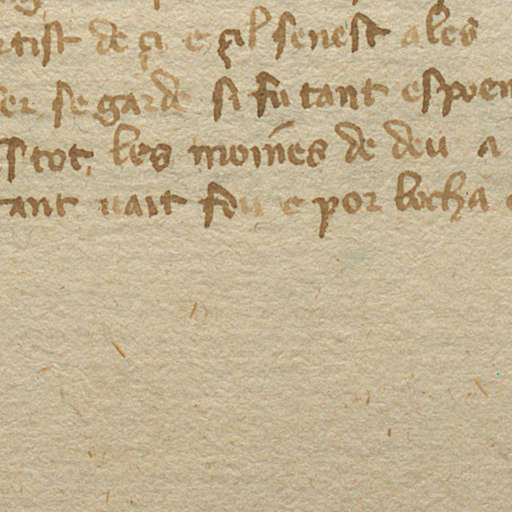 rtist de çi e çil senest ales
er se garde si fu tant espoen
s tot les moines de deu a
tant uait fou e por bocha